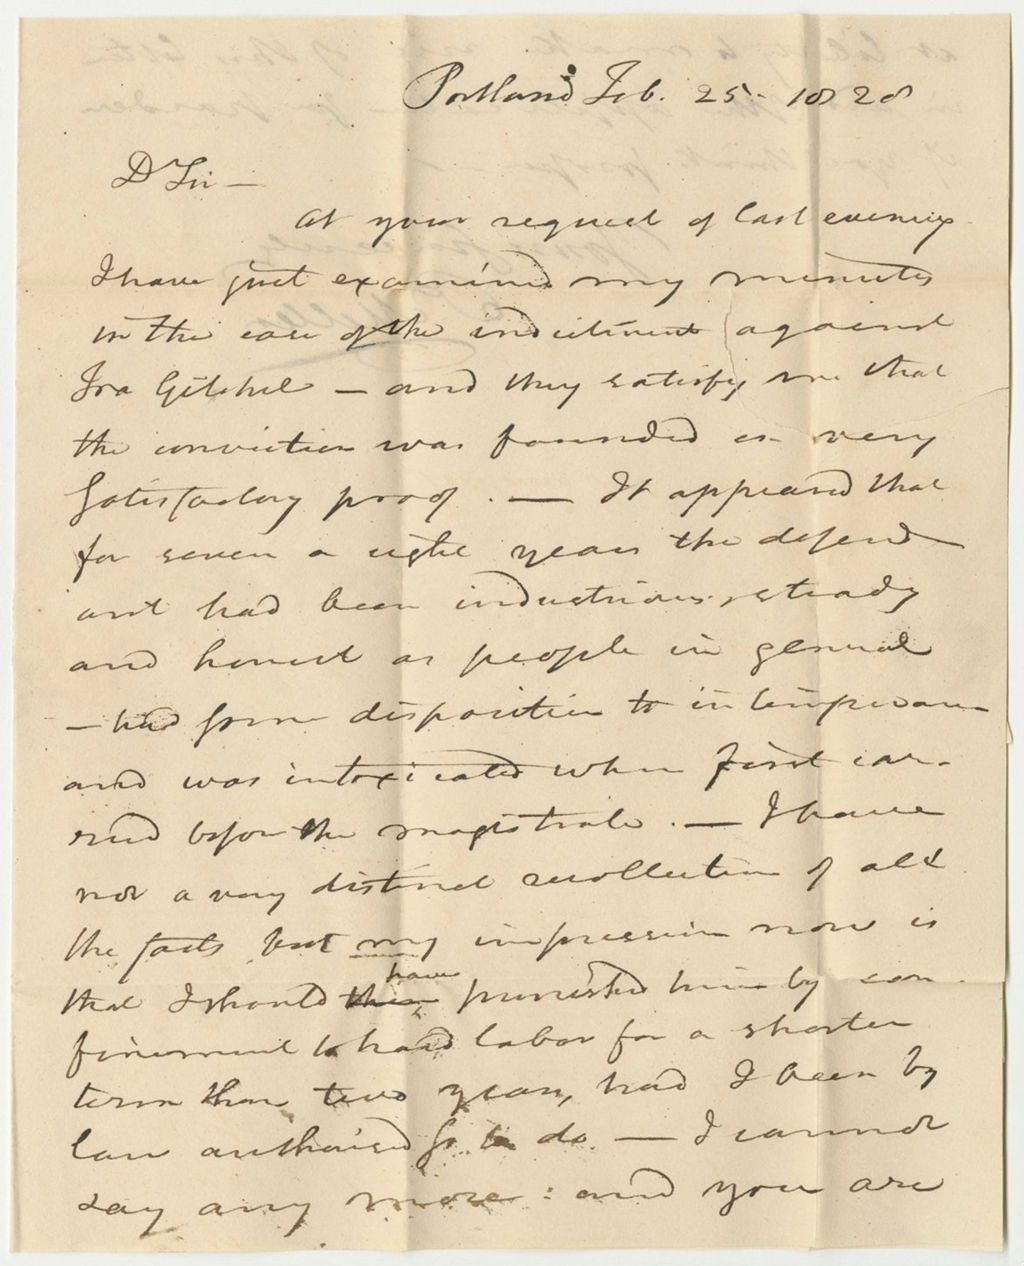 Portland Feb. 25. 1828
D Sir —
At your request of last evening
I have just examined my minutes
in the case of the indictment against
Ira Gitchel — and they satisfy me that
the conviction was founded on very
satisfactory proof. — It appeared that
for seven or eight years the defend
ant had been industrious, steady
and honest as people in general
— had some disposition to intemperance
and was intoxicated when first car-
ried before the magistrate. — I have
not a very distinct recollection of all
the facts but my impression now is
that I should have punished him by con
finement to hard labor for a shorter
term than two years, had I been by
law authorised so to do. — I cannot
say any more: and you are